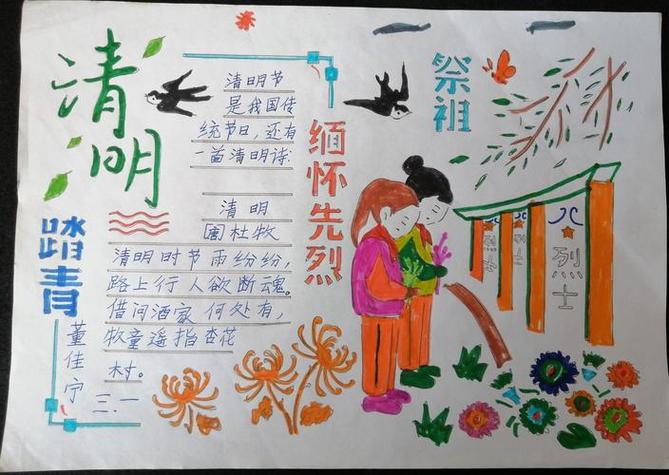 清明
踏青
清明节
是我国传
统节日，还有
一首清明诗：
清明
[唐]杜牧
清明时节雨纷纷，
路上行人欲断魂。
借问酒家何处有，
牧童遥指杏花
村。
董佳宁
三.一
缅怀先烈
祭祖
烈士
烈士
烈士